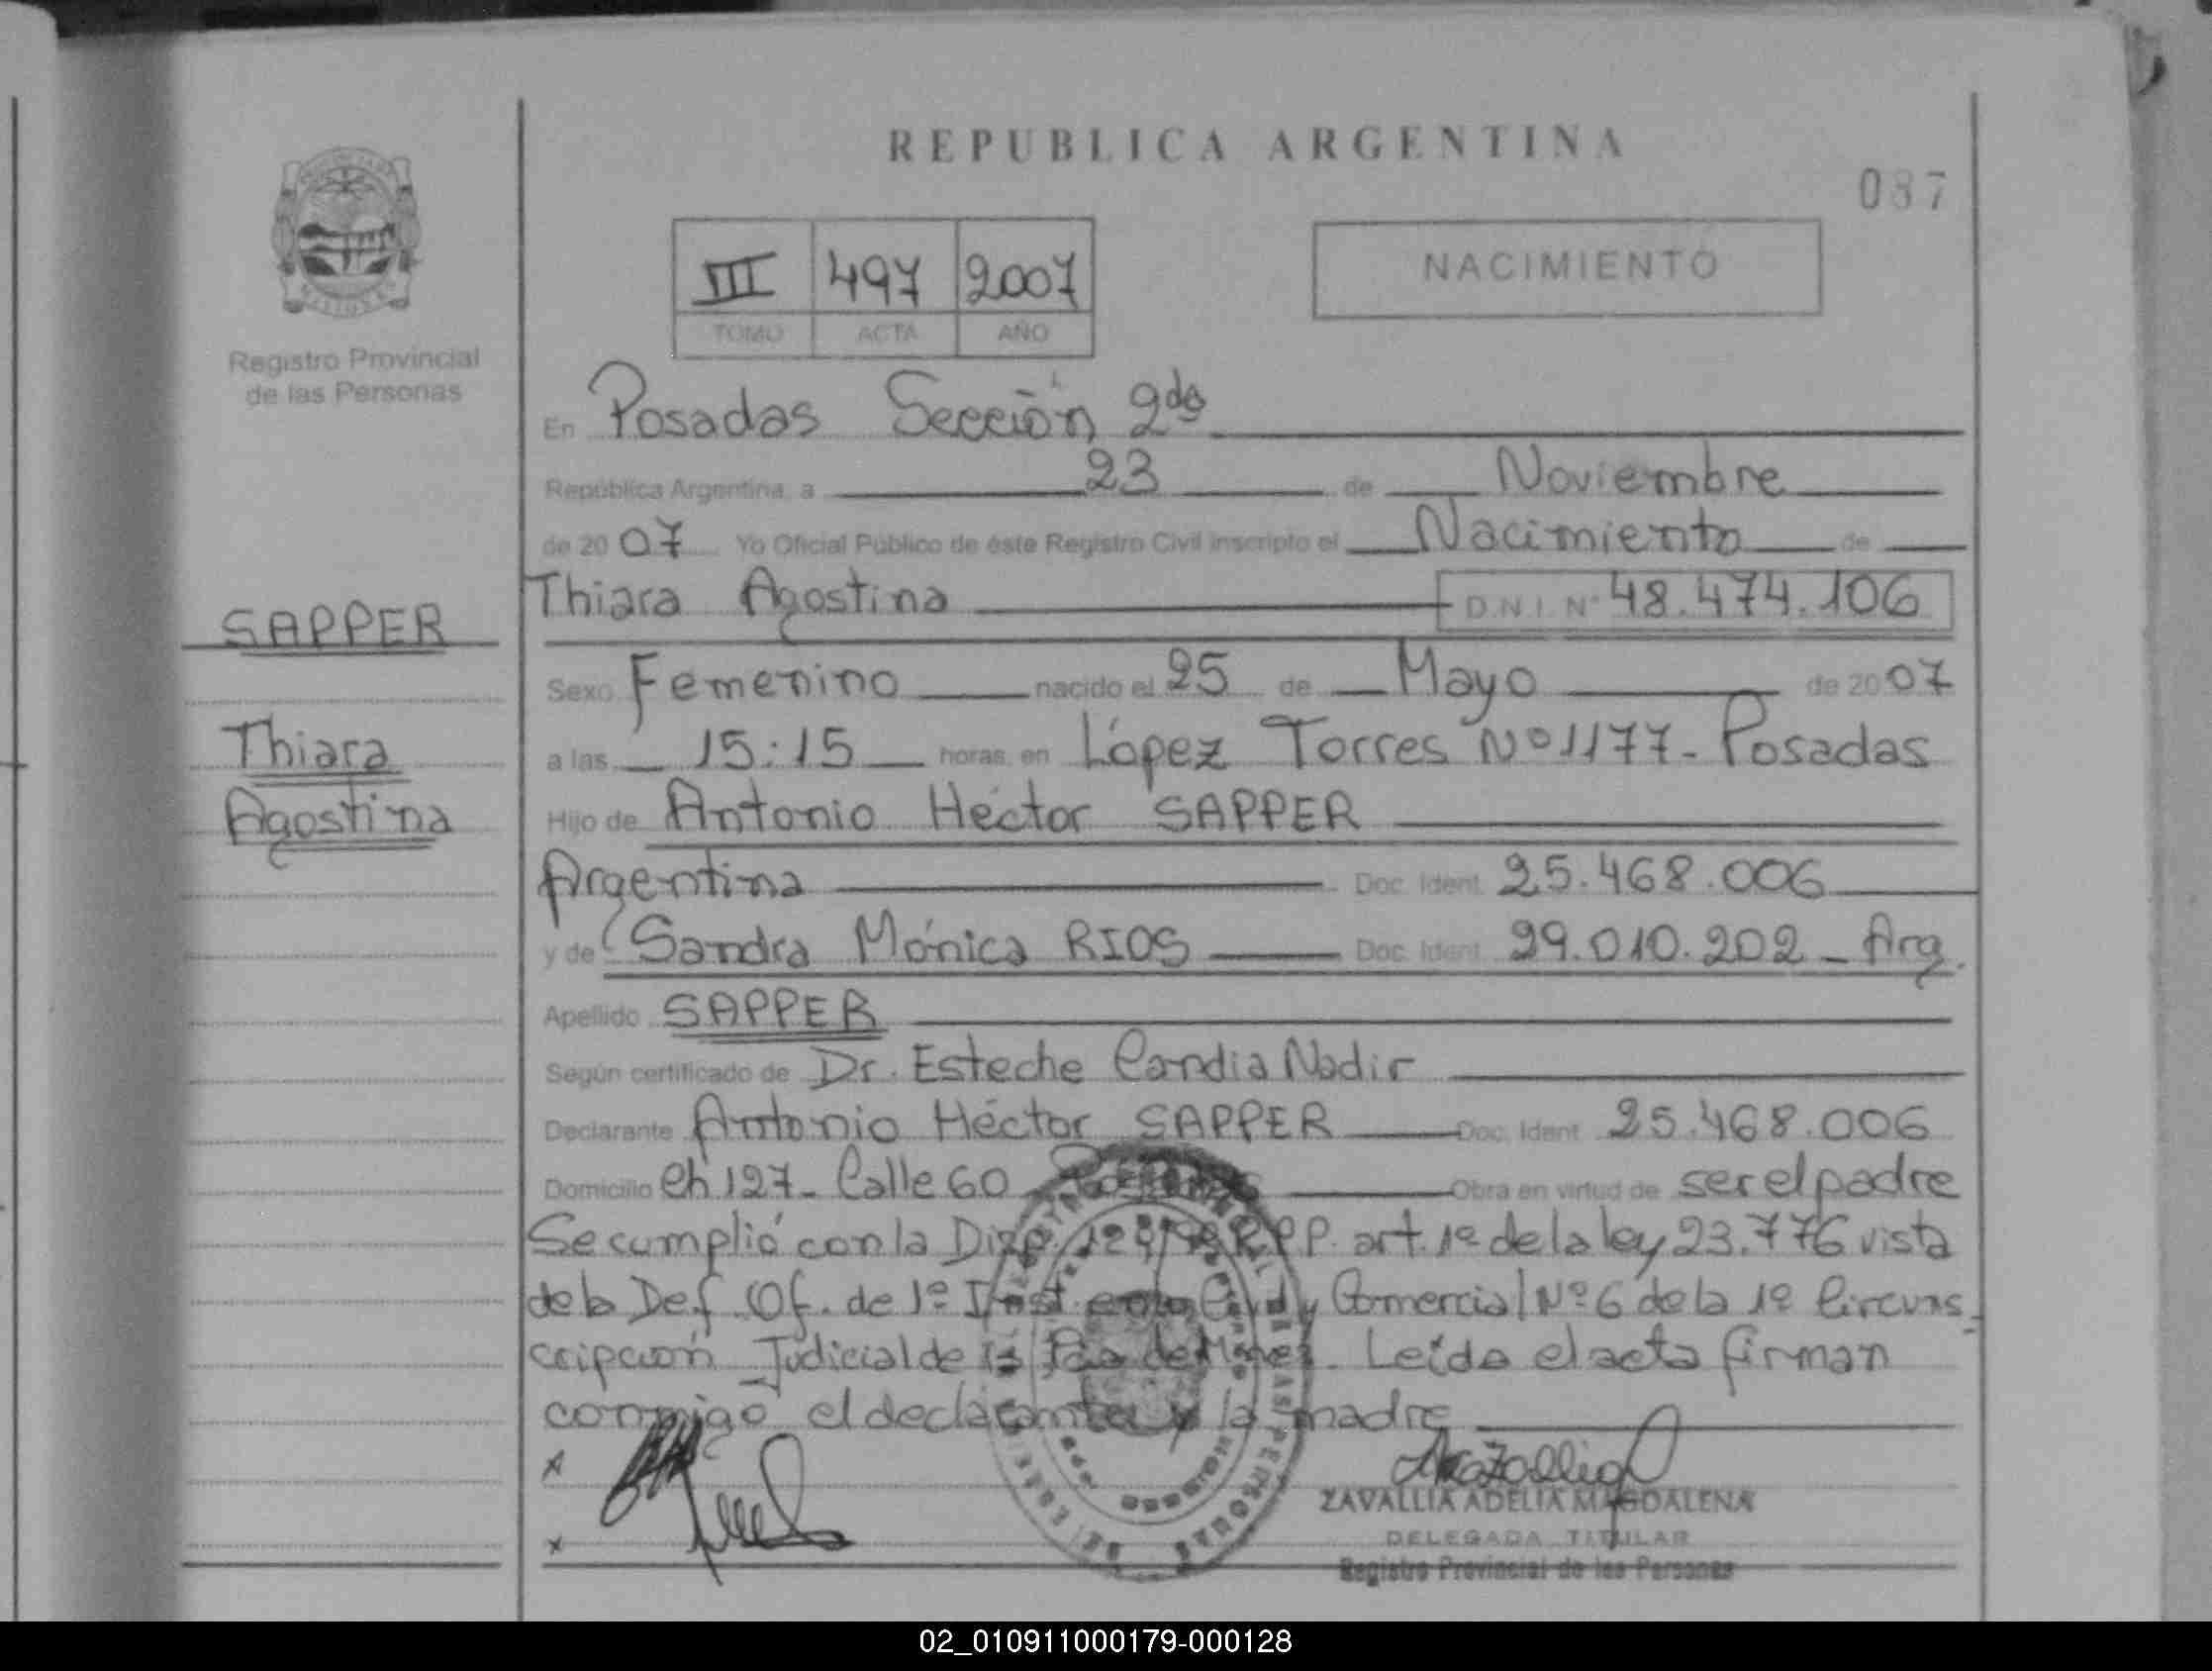 REPUBLICA ARGENTINA
087
III 497 2007
TOMO ACTA AÑO
NACIMIENTO
Registro Provincial
de las Personas
SAPPER
Thiara
Agostina
En Posadas Sección 2da
República Argentina, a 23 de Noviembre
de 2007 Yo Oficial Público de éste Registro Civil inscripto el Nacimiento de
Thiara Agostina D.N.I. Nº 48.474.106
Sexo Femenino nacido el 25 de Mayo de 2007
a las 15:15 horas, en López Torres Nº 1177- Posadas
Hijo de Antonio Héctor SAPPER
Argentina Doc. Ident. 25.468.006
y de Sandra Mónica RIOS Doc. Ident. 29.010.202 - Arg.
Apellido SAPPER
Según certificado de Dr. Esteche Candia Nadir
Declarante Antonio Héctor SAPPER Doc. Ident. 25.468.006
Domicilio Ch 127- Calle 60 Posadas Obra en virtud de ser el padre
Se cumplió con la Disp. R.P.P. art. 1º de la ley 23.776 vista
de la Def. Of. de 1º Inst. en lo Civil y Comercial Nº 6 de la 1º Circuns-
cripción Judicial de la Pcia de Mnes. Leída el acta firman
conmigo el declarante y la madre
x
x
ZAVALLIA ADELIA MAGDALENA
DELEGADA TITULAR
Registro Provincial de las Personas
02_010911000179-000128